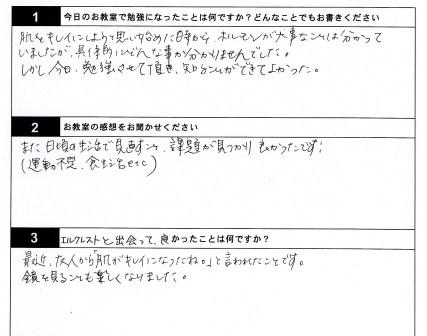 1 今日のお教室で勉強になったことは何ですか？どんなことでもお書きください
肌をキレイにしようと思い始めた時から、ホルモンが大事なことは分かって
いましたが、具体的にどんな事か分かりませんでした。
しかし今日、勉強させて頂き、知ることができてよかった。
2 お教室の感想をお聞かせください
また日頃の生活で見直すこと、課題が見つかり良かったです！
(運動不足、食生活etc)
3 エルクレストと出会って、良かったことは何ですか？
最近、友人から「肌がキレイになったね。」と言われたことです。
鏡を見ることも楽しくなりました。